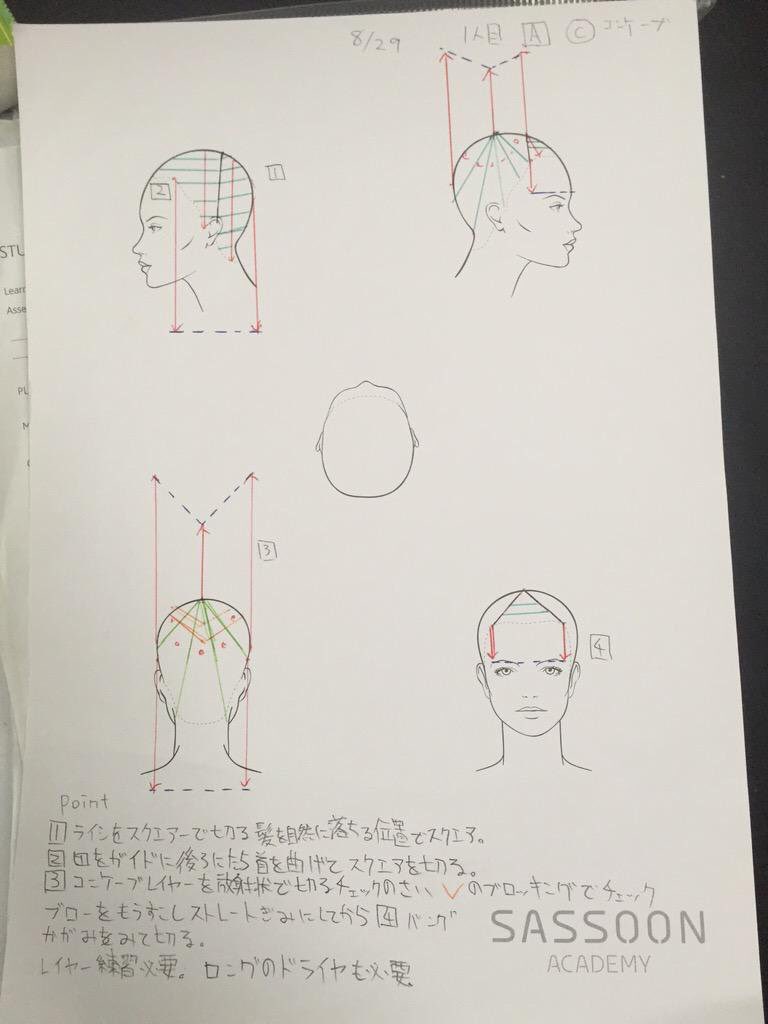 8/29 1人目 A C コンケーブ
1
2
3
4
Point
1 ラインをスクエアーで切る 髪を自然に落ちる位置でスクエア。
2 1をガイドに後ろにたらし首を曲げて スクエアを切る。
3 コンケーブレイヤーを放射状で切るチェックのさい Vのブロッキングでチェック
ブローをもうすこしストレートぎみにしてから 4 バング
かがみをみて切る。
レイヤー練習必要。 ロングのドライヤも必要
SASSOON
ACADEMY
STU
Learn
Asse
PL
M